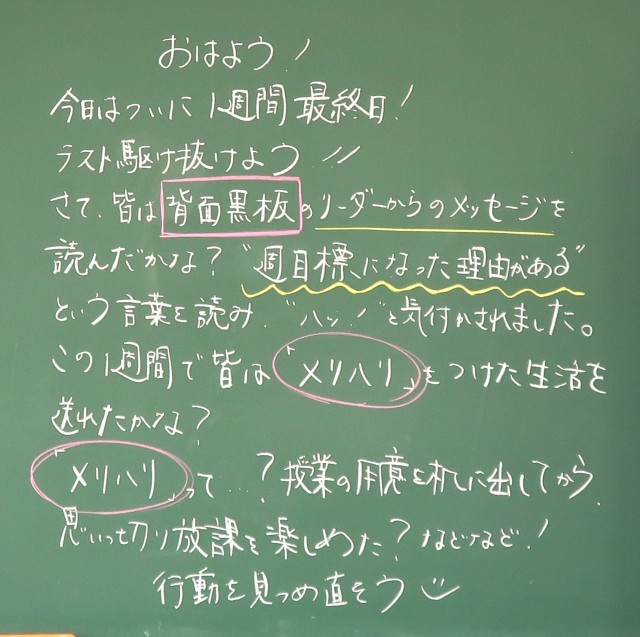 おはよう!
今日はついに1週間最終日!
ラスト駆け抜けよう!!
さて、皆は背面黒板のリーダーからのメッセージを
読んだかな?"週目標になった理由がある"
という言葉を読み、"ハッ!"と気付かされました。
この1週間で皆は「メリハリ」をつけた生活を
送れたかな?
「メリハリ」って…?授業の用意を机に出してから、
思いっ切り放課を楽しめた?などなど!
行動を見つめ直そう